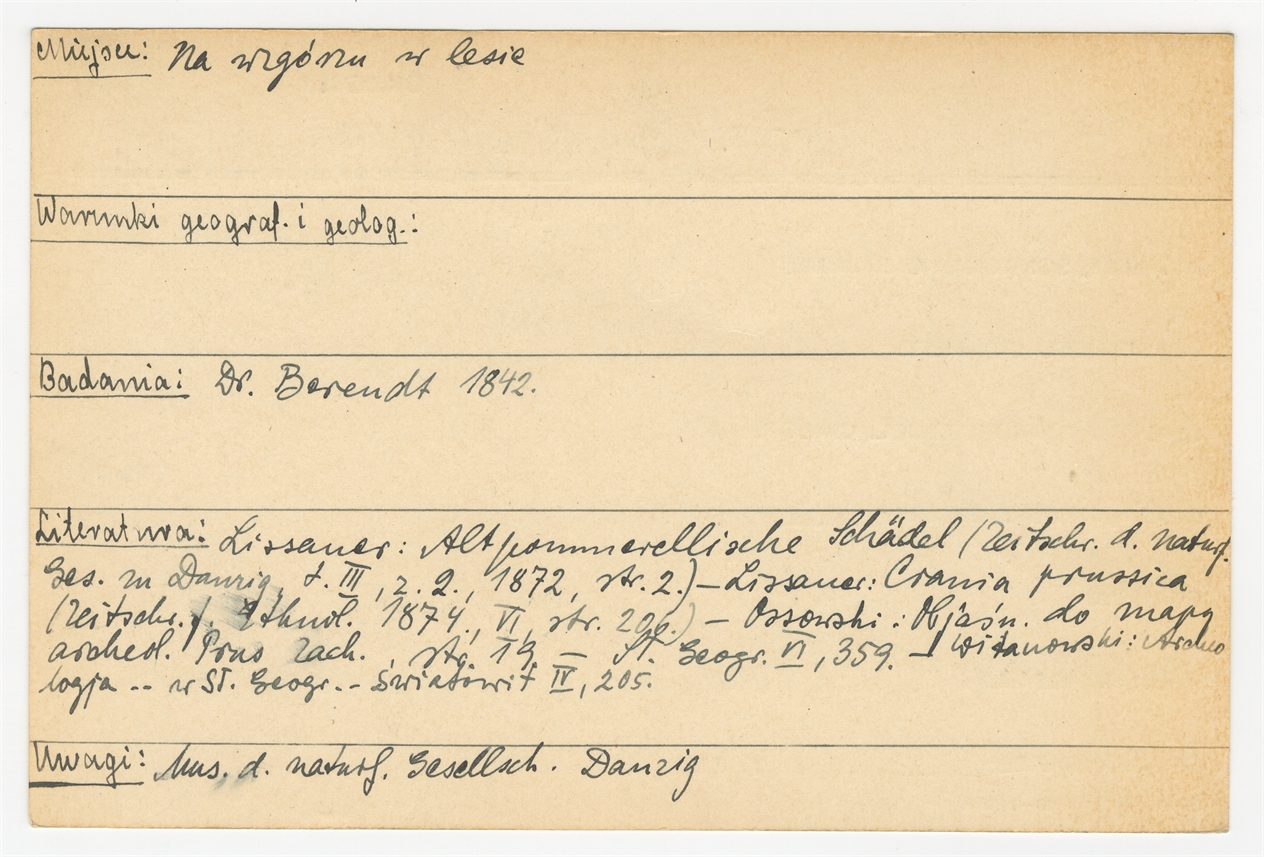 Miejsce: Na wzgórzu w lesie
Warunki geograf. i geolog.:
Badania: Dr. Berendt 1842.
Literatura: Lissauer: Altpommerellische Schädel (Zeitschr. d. naturf.
Ges. zu Danzig, t. III, z. 2., 1872, str. 2.) – Lissauer: Crania prussica
(Zeitschr. f. Ethnol. 1874, VI, str. 206.) – Ossowski: Objaśn. do mapy
archeol. Prus Zach., str. 19 – Sł. Geogr. VI, 359. – Witanowski: Archeo
logja -- w Sł. Geogr. -- Światowit IV, 205.
Uwagi: Mus. d. naturf. Gesellsch. Danzig